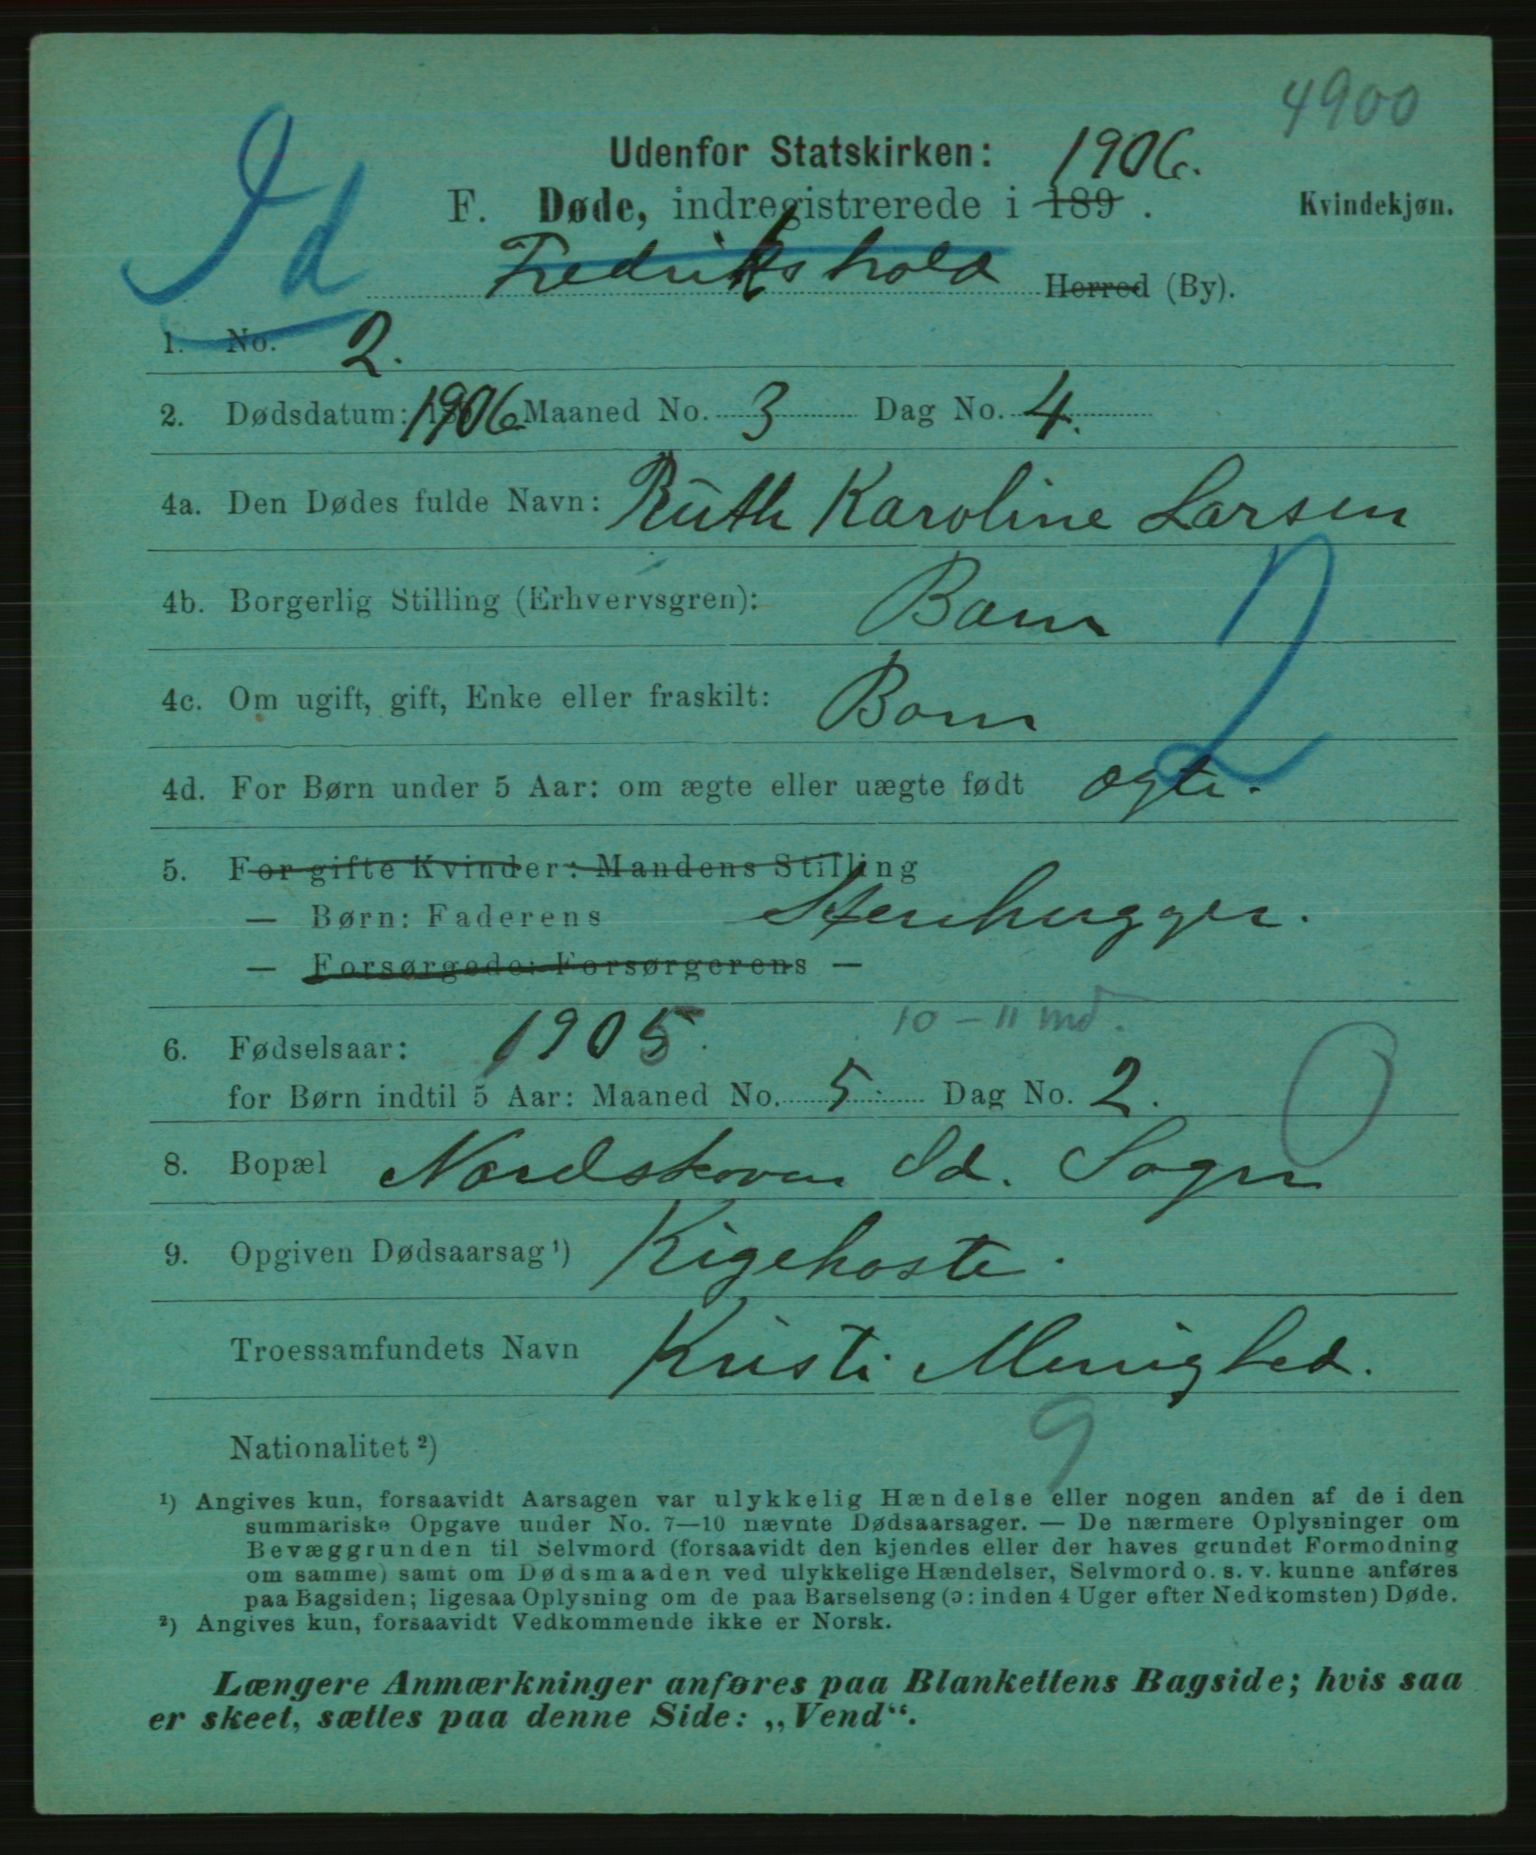 4900
Id
Udenfor Statskirken: 1906.
F. Døde, indregistrerede i 189 . Kvindekjøn.
Fredrikshald Herred (By).
1. No. 2.
2. Dødsdatum: 1906 Maaned No. 3 Dag No. 4.
4a. Den Dødes fulde Navn: Ruth Karoline Larsen
4b. Borgerlig Stilling (Erhvervsgren): Barn
2
4c. Om ugift, gift, Enke eller fraskilt: Barn
4d. For Børn under 5 Aar: om ægte eller uægte født ægte.
5. For gifte Kvinder: Mandens Stilling
— Børn: Faderens Stenhugger.
— Forsørgede: Forsørgerens —
6. Fødselsaar: 1905. 10 – 11 md.
for Børn indtil 5 Aar: Maaned No. 5 Dag No. 2. 0
8. Bopæl Nordskoven Id. Sogn
9. Opgiven Dødsaarsag ¹) Kigehoste.
Troessamfundets Navn Kristi Menighed.
9
Nationalitet ²)
¹) Angives kun, forsaavidt Aarsagen var ulykkelig Hændelse eller nogen anden af de i den
summariske Opgave under No. 7—10 nævnte Dødsaarsager. — De nærmere Oplysninger om
Bevæggrunden til Selvmord (forsaavidt den kjendes eller der haves grundet Formodning
om samme) samt om Dødsmaaden ved ulykkelige Hændelser, Selvmord o. s. v. kunne anføres
paa Bagsiden; ligesaa Oplysning om de paa Barselseng (ɔ: inden 4 Uger efter Nedkomsten) Døde.
²) Angives kun, forsaavidt Vedkommende ikke er Norsk.
Længere Anmærkninger anføres paa Blankettens Bagside; hvis saa
er skeet, sættes paa denne Side: „Vend“.